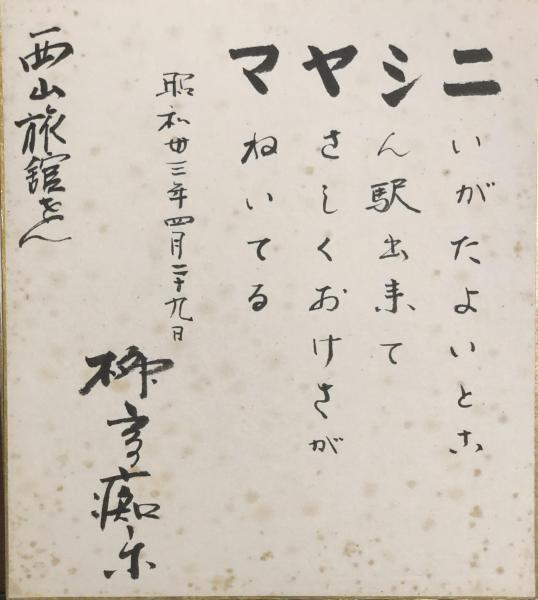 ニいがたよいとこ
シん駅出来て
ヤさしくおけさが
マねいてる
昭和卅三年四月二十九日
柳亭痴楽
西山旅館さん